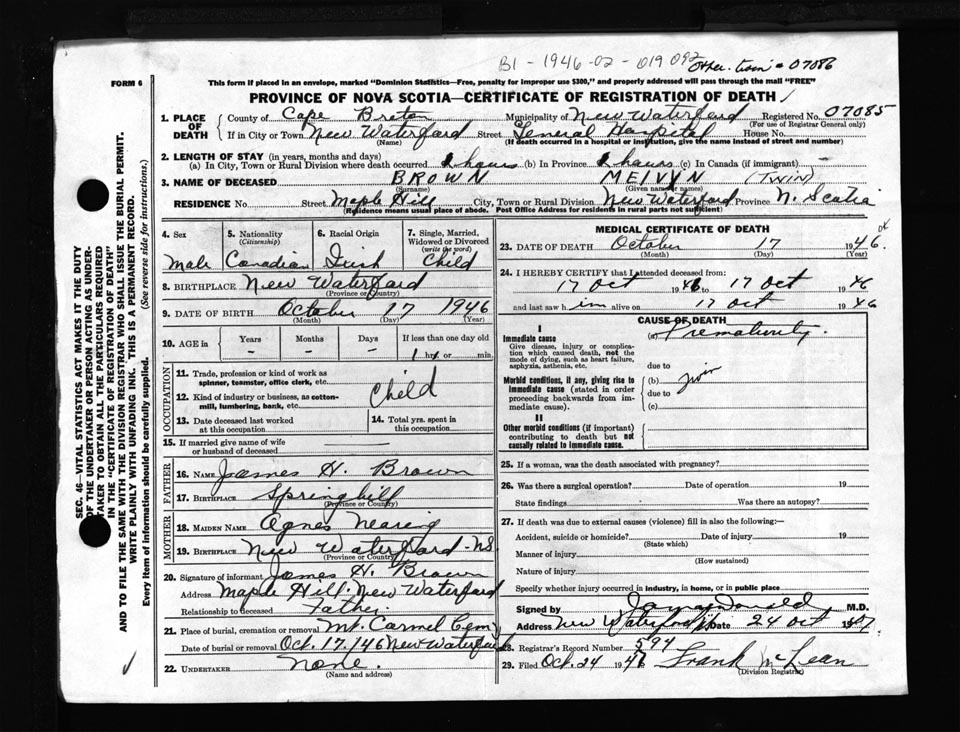 B1 - 1946-02 - 019092
Other twin # 07086
FORM 6
This form if placed in an envelope, marked "Dominion Statistics—Free, penalty for improper use $300," and properly addressed will pass through the mail "FREE"
PROVINCE OF NOVA SCOTIA—CERTIFICATE OF REGISTRATION OF DEATH
1. PLACE OF DEATH
County of Cape Breton Municipality of New Waterford Registered No. 07085
(For use of Registrar General only)
If in City or Town New Waterford Street General Hospital House No.
(Name) (If death occurred in a hospital or institution, give the name instead of street and number)
2. LENGTH OF STAY (in years, months and days)
(a) In City, Town or Rural Division where death occurred 1 hours (b) In Province 1 hours (c) In Canada (if immigrant) —
3. NAME OF DECEASED BROWN MELVYN (TWIN)
(Surname) (Given name or names)
RESIDENCE No. Street Maple Hill City, Town or Rural Division New Waterford Province N. Scotia
(Residence means usual place of abode. Post Office Address for residents in rural parts not sufficient)
SEC. 46—VITAL STATISTICS ACT MAKES IT THE DUTY
OF THE UNDERTAKER OR PERSON ACTING AS UNDER-
TAKER TO OBTAIN ALL THE PARTICULARS REQUIRED
IN THE "CERTIFICATE OF REGISTRATION OF DEATH"
AND TO FILE THE SAME WITH THE DIVISION REGISTRAR WHO SHALL ISSUE THE BURIAL PERMIT.
WRITE PLAINLY WITH UNFADING INK. THIS IS A PERMANENT RECORD.
Every item of information should be carefully supplied. (See reverse side for instructions.)
4. Sex
Male
5. Nationality
(Citizenship)
Canadian
6. Racial Origin
Irish
7. Single, Married,
Widowed or Divorced
(write the word)
Child
8. BIRTHPLACE New Waterford
(Province or Country)
9. DATE OF BIRTH October 17 1946
(Month) (Day) (Year)
10. AGE in
Years Months Days If less than one day old
- - - 1 hrs. or min.
OCCUPATION
11. Trade, profession or kind of work as
spinner, teamster, office clerk, etc.
Child
12. Kind of industry or business, as cotton-
mill, lumbering, bank, etc.
13. Date deceased last worked
at this occupation
14. Total yrs. spent in
this occupation
15. If married give name of wife
or husband of deceased
FATHER
16. NAME James H. Brown
17. BIRTHPLACE Springhill
(Province or Country)
MOTHER
18. MAIDEN NAME Agnes Nearing
19. BIRTHPLACE New Waterford - NS.
(Province or Country)
20. Signature of informant James H. Brown
Address Maple Hill. New Waterford
Relationship to deceased Father.
21. Place of burial, cremation or removal Mt. Carmel Cem
Date of burial or removal Oct. 17./46 New Waterford
22. UNDERTAKER None.
(Name and address)
MEDICAL CERTIFICATE OF DEATH
23. DATE OF DEATH October 17 1946
(Month) (Day) (Year)
24. I HEREBY CERTIFY that I attended deceased from:
17 Oct 1946 to 17 Oct 1946
and last saw him alive on 17 Oct 1946
CAUSE OF DEATH
I
Immediate cause
Give disease, injury or complica-
tion which caused death, not the
mode of dying, such as heart failure,
asphyxia, asthenia, etc.
(a) Prematurity.
due to
Morbid conditions, if any, giving rise to
immediate cause (stated in order
proceeding backwards from im-
mediate cause).
(b) Twin
due to
(c)
II
Other morbid conditions (if important)
contributing to death but not
causally related to immediate cause.
25. If a woman, was the death associated with pregnancy?
26. Was there a surgical operation? Date of operation 19
State findings Was there an autopsy?
27. If death was due to external causes (violence) fill in also the following:—
Accident, suicide or homicide? Date of injury 19
(State which)
Manner of injury
(How sustained)
Nature of injury
Specify whether injury occurred in industry, in home, or in public place
Signed by M.D.
Address New Waterford Date 24 Oct
28. Registrar's Record Number 594
29. Filed Oct. 24 1946 Frank McLean
(Division Registrar)